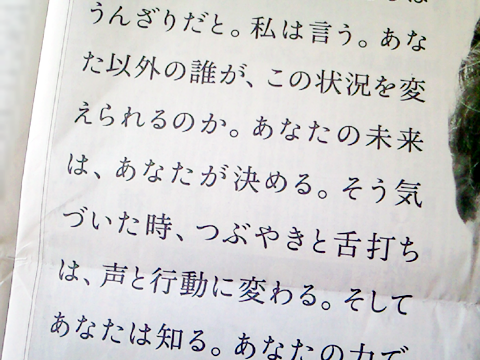 うんざりだと。私は言う。あな
た以外の誰が、この状況を変
えられるのか。あなたの未来
は、あなたが決める。そう気
づいた時、つぶやきと舌打ち
は、声と行動に変わる。そして
あなたは知る。あなたの力で